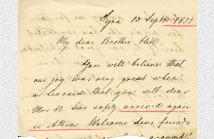 Syra 13 Septbr 1851
My dear Brother Hill.
You will believe that
our joy was very great when
we learned that you, with dear
Mrs H. was safely arrived again
in Athens. Welcome dear friends